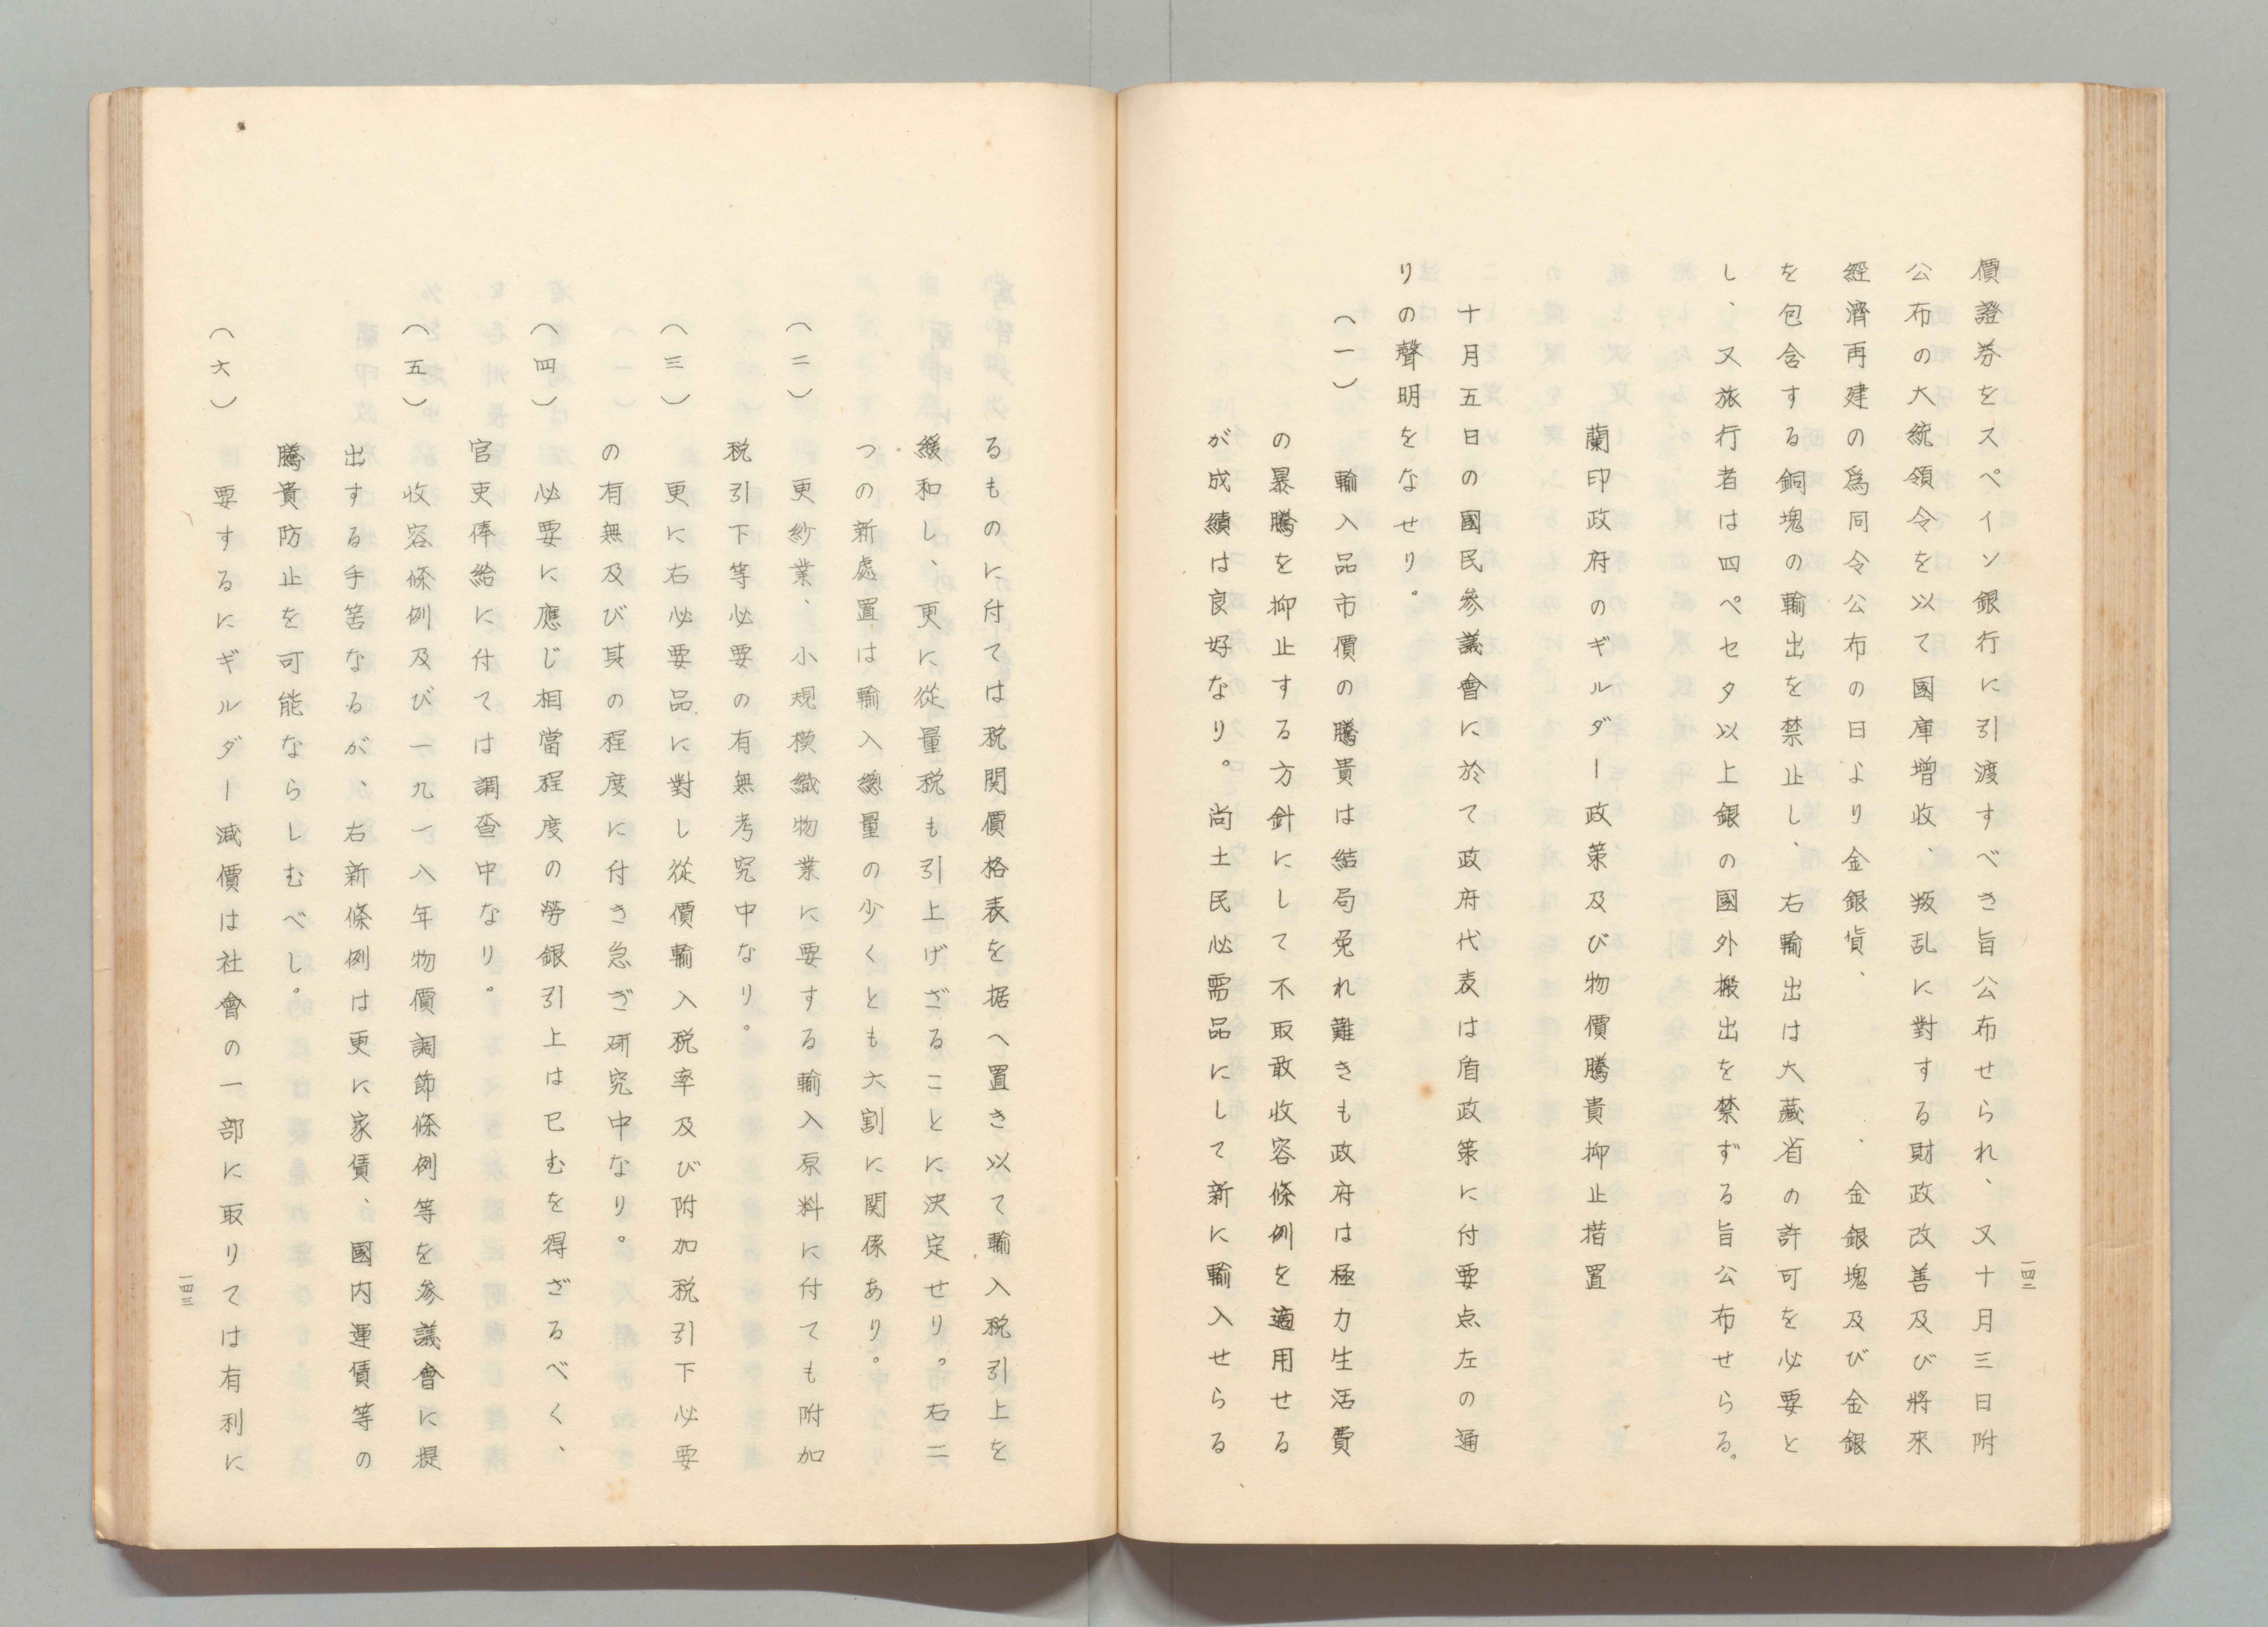 價證券をスペイン銀行に引渡すべき旨公布せられ、又十月三日附
公布の大統領令を以て國庫增收、叛乱に對する財政改善及び將來
經濟再建の爲同令公布の日より金銀貨、金銀塊及び金銀
を包含する銅塊の輸出を禁止し、右輸出は大藏省の許可を必要と
し、又旅行者は四ペセタ以上銀の國外搬出を禁ずる旨公布せらる。
蘭印政府のギルダー政策及び物價騰貴抑止措置
十月五日の國民參議會に於て政府代表は盾政策に付要点左の通
りの聲明をなせり。
(一) 輸入品市價の騰貴は結局免れ難きも政府は極力生活費
の暴騰を抑止する方針にして不取敢收容條例を適用せる
が成績は良好なり。尚土民必需品にして新に輸入せらる
一四二
るものに付ては税関價格表を据へ置き以て輸入税引上を
緩和し、更に從量税も引上げざることに決定せり。右二
つの新處置は輸入總量の少くとも六割に関係あり。
(二) 更紗業、小規模織物業に要する輸入原料に付ても附加
税引下等必要の有無考究中なり。
(三) 更に右必要品に對し從價輸入税率及び附加税引下必要
の有無及び其の程度に付き急ぎ研究中なり。
(四) 必要に應じ相當程度の勞銀引上は已むを得ざるべく、
官吏俸給に付ては調査中なり。
(五) 收容條例及び一九一八年物價調節條例等を參議會に提
出する手筈なるが、右新條例は更に家賃、國内運賃等の
騰貴防止を可能ならしむべし。
(六) 要するにギルダー減價は社會の一部に取りては有利に
一四三